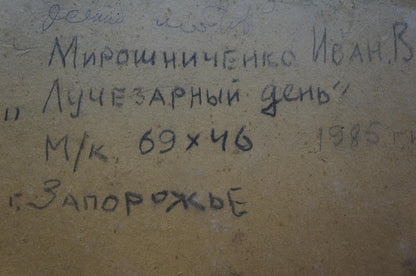 Мирошниченко Иван.В
„Лучезарный день"
М/к 69х46 1985 г.
г. Запорожье